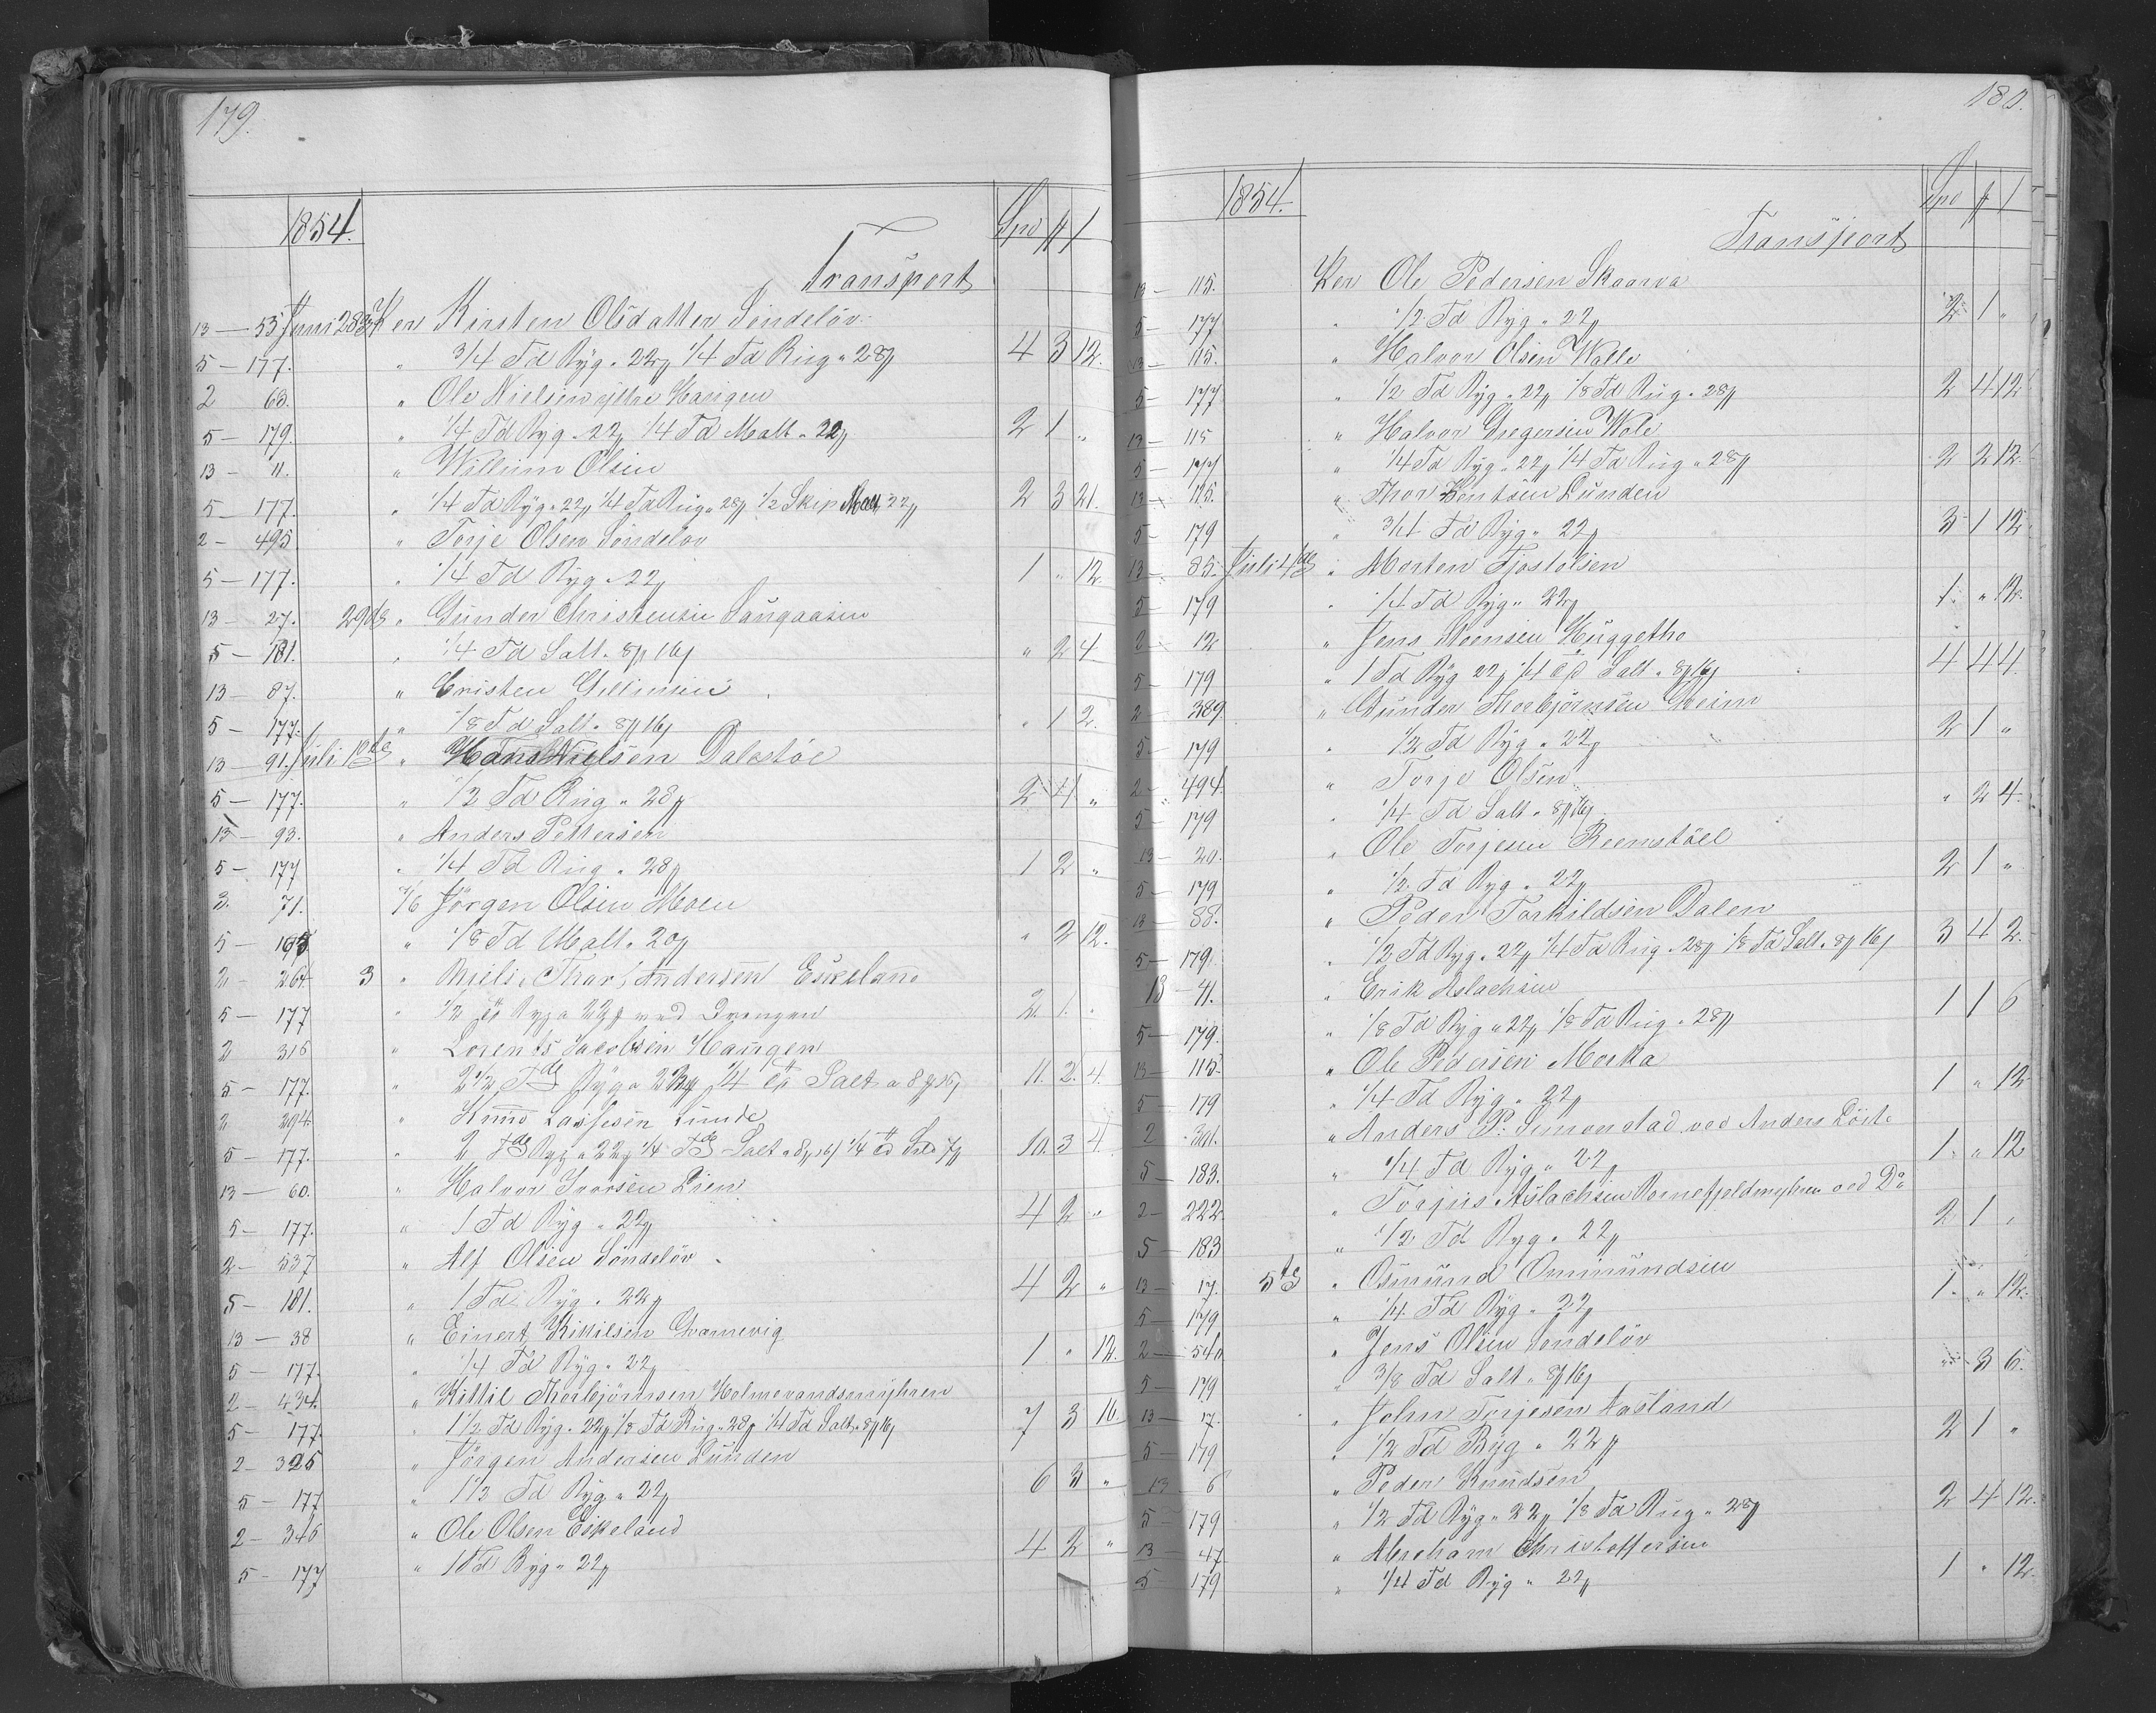 179.
1854. Spd # /
Transport
13 — 53 Juni 28de Per Kirsten Olsdatter Söndelöv
5 — 177. " 3/4 Td Byg " 22# 1/4 Td Rug " 28# 4 3 12.
2 63. " Ole Nielsen yttre Haugen
5 — 179. " 1/4 Td Byg " 22# 1/4 Td Malt " 22# 2 1 "
13 — 11. " Willium Olsen
5 — 177. " 1/4 Td Byg " 22# 1/4 Td Rug " 28# 1/2 Skip Malt 22# 2 3 21.
2 — 495 " Torje Olsen Söndelöv
5 — 177. " 1/4 Td Byg " 22# 1 " 12
13 — 27. 29de " Gunder Christensen
5 — 181. " 1/4 Td Salt " 8# 16/ " 2 4
13 — 87. " Cristen
5 — 177. " 1/8 Td Salt " 8# 16/ " 1 2.
13 — 91. Juli 1ste " Hans Nielsen Dalestöe
5 — 177. " 1/2 Td Rug " 28# 2 4 "
13 — 93. " Anders Pettersen
5 — 177 " 1/4 Td Rug " 28# 1 2 "
3. 71. Jörgen Olsen Moen
5 — " 1/8 Td Malt " 20# " 2 12.
2 — 264 3 " Niels & Thor Andersen Eskeland
5 — 177 " 1/2 Td Byg a 22# ved Drengen 2 1 "
2 316 " Lorents Jacobsen Haugen
5 — 177. " 2 1/2 Tde Byg a 22# 1/4 Td Salt a 8# 16/ 11. 2. 4.
2 294 " Knud Lassesen Lunde
5 — 177. " 2 Tde Byg a 22# 1/4 Tde Salt a 8# 16/ 1/4 Td Sild 7# 10. 3 4
13 — 60. " Halvor Ivarsen Lien
5 — 177. " 1 Td Byg " 22# 4 2 "
2 — 537 " Alf Olsen Söndelöv
5 — 181. " 1 Td Byg " 22# 4 2 "
13 — 38 " Einert Kittilsen
5 — 177. " 1/4 Td Byg " 22# 1 " 12.
2 — 434. " Kittil Thorbjörnsen Holmevandsmyhren
5 — 177 " 1 1/2 Td Byg " 22# 1/8 Td Rug " 28# 1/4 Td Salt " 8# 16/ 7 3 16
2 — 325 " Jörgen Andersen Lunden
5 — 177 " 1 1/2 Td Byg " 22# 6 3 "
2 — 346 " Ole Olsen Eskeland
5 — 177 " 1 Td Byg " 22# 4 2 "
180.
1854. Spd # /
Transport
13 — 115. Per Ole Pedersen Skaarva
5 — 177 " 1/2 Td Byg " 22# 2 1 "
13 — 115. " Halvor Olsen Walle
5 — 177 " 1/2 Td Byg " 22# 1/8 Td Rug " 28# 2 4 12
13 — 115 " Halvor Gregersen Wole
5 — 177 " 1/4 Td Byg " 22# 1/4 Td Rug " 28# 2 2 12.
13 — 115. " Thor Bentsen Lunden
5 — 179 " 3/4 Td Byg " 22# 3 1 12
13 — 85. Juli 4de " Morten Tjostolsen
5 — 179 " 1/4 Td Byg " 22# 1. " 12.
2 — 12 " Jens Moensen Huggetho
5 — 179 " 1 Td Byg 22# 1/4 Td Salt " 8# 16/ 4 4 4
2 — 389. " Gunder Thorbjörnsen Greim
5 — 179 " 1/2 Td Byg " 22# 2 1 "
2 — 494 " Torje Olsen
5 — 179 " 1/4 Td Salt " 8# 16/ " 2 4.
13 — 20. " Ole Torjesen
5 — 179 " 1/2 Td Byg " 22# 2 1 "
13 — 88. " Peder Torkildsen Dalen
5 — 179. " 1/2 Td Byg " 22# 1/4 Td Rug " 28# 1/8 Td Salt " 8# 16/ 3 4 2.
13 — 41. " Erik Aslachsen
5 — 179. " 1/8 Td Byg " 22# 1/8 Td Rug " 28# 1 1 6
13 — 115. " Ole Pedersen Morka
5 — 179 " 1/4 Td Byg " 22# 1 " 12
2 301. " Anders P. Simonstad ved Anders
5 — 183. " 1/4 Td Byg " 22# 1. " 12
2 — 222. " Torjus Aslachsen ved Do
5 — 183 " 1/2 Td Byg " 22# 2 1 "
13 — 17. 5te " Osmund Ommundsen
5 — 179 " 1/4 Td Byg " 22# 1. " 12.
2 — 540 " Jens Olsen Söndelöv
5 — 179 " 3/8 Td Salt " 8# 16/ " 3 6.
13 — 17. " John Torjesen Aasland
5 — 179 " 1/2 Td Byg " 22# 2 1 "
13 — 6 " Peder Knudsen
5 — 179 " 1/2 Td Byg " 22# 1/8 Td Rug " 28# 2 4 12.
13 — 47 " Abraham Christoffersen
5 — 179 " 1/4 Td Byg " 22# 1 " 12.